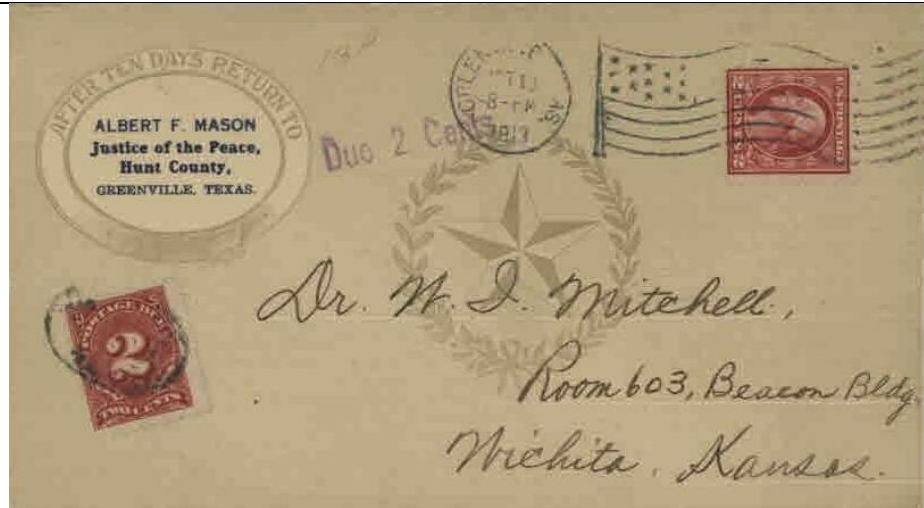 AFTER TEN DAYS RETURN TO
ALBERT F. MASON
Justice of the Peace,
Hunt County,
GREENVILLE, TEXAS.
Due 2 Cents
8-PM
POSTAGE DUE
2
TWO CENTS
Dr. W. I. Mitchell,
Room 603, Beacon Bldg.
Wichita, Kansas.